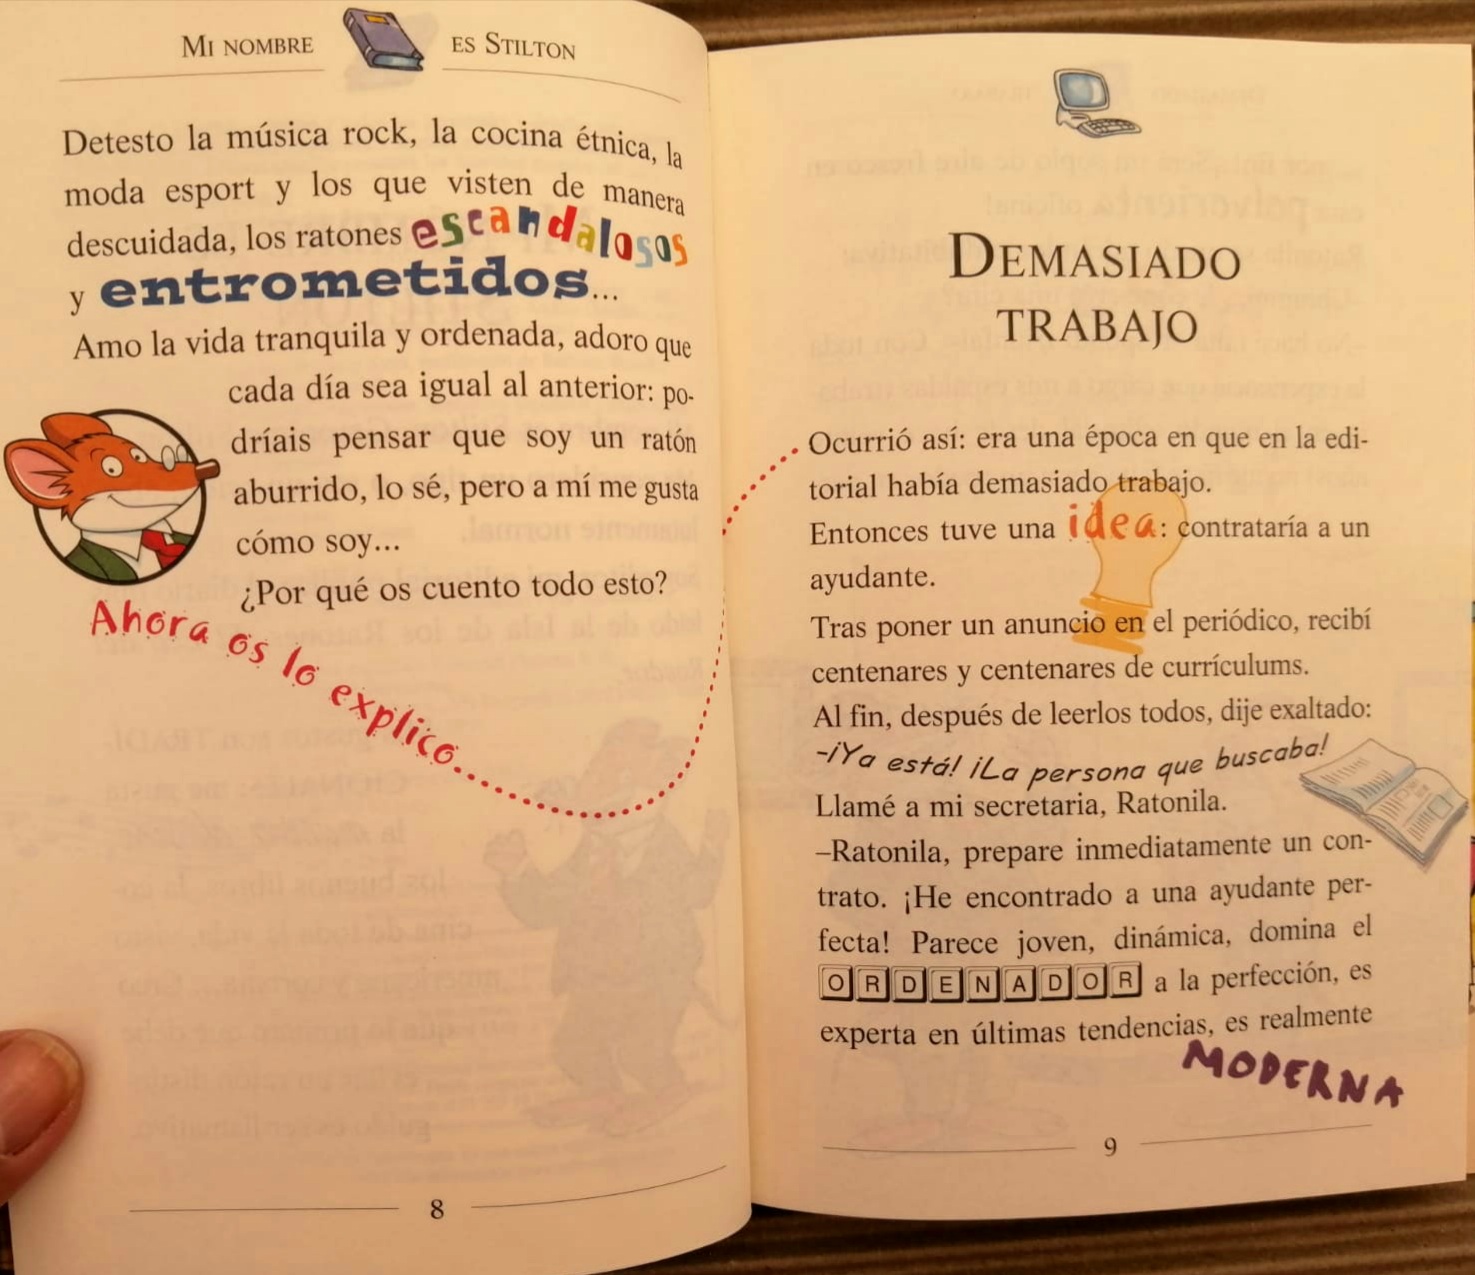 MI NOMBRE ES STILTON
Detesto la música rock, la cocina étnica, la
moda esport y los que visten de manera
descuidada, los ratones escandalosos
y entrometidos...
Amo la vida tranquila y ordenada, adoro que
cada día sea igual al anterior: po-
dríais pensar que soy un ratón
aburrido, lo sé, pero a mí me gusta
cómo soy...
¿Por qué os cuento todo esto?
Ahora os lo explico...
8
DEMASIADO
TRABAJO
Ocurrió así: era una época en que en la edi-
torial había demasiado trabajo.
Entonces tuve una idea: contrataría a un
ayudante.
Tras poner un anuncio en el periódico, recibí
centenares y centenares de currículums.
Al fin, después de leerlos todos, dije exaltado:
–¡Ya está! ¡La persona que buscaba!
Llamé a mi secretaria, Ratonila.
–Ratonila, prepare inmediatamente un con-
trato. ¡He encontrado a una ayudante per-
fecta! Parece joven, dinámica, domina el
ORDENADOR a la perfección, es
experta en últimas tendencias, es realmente
MODERNA
9